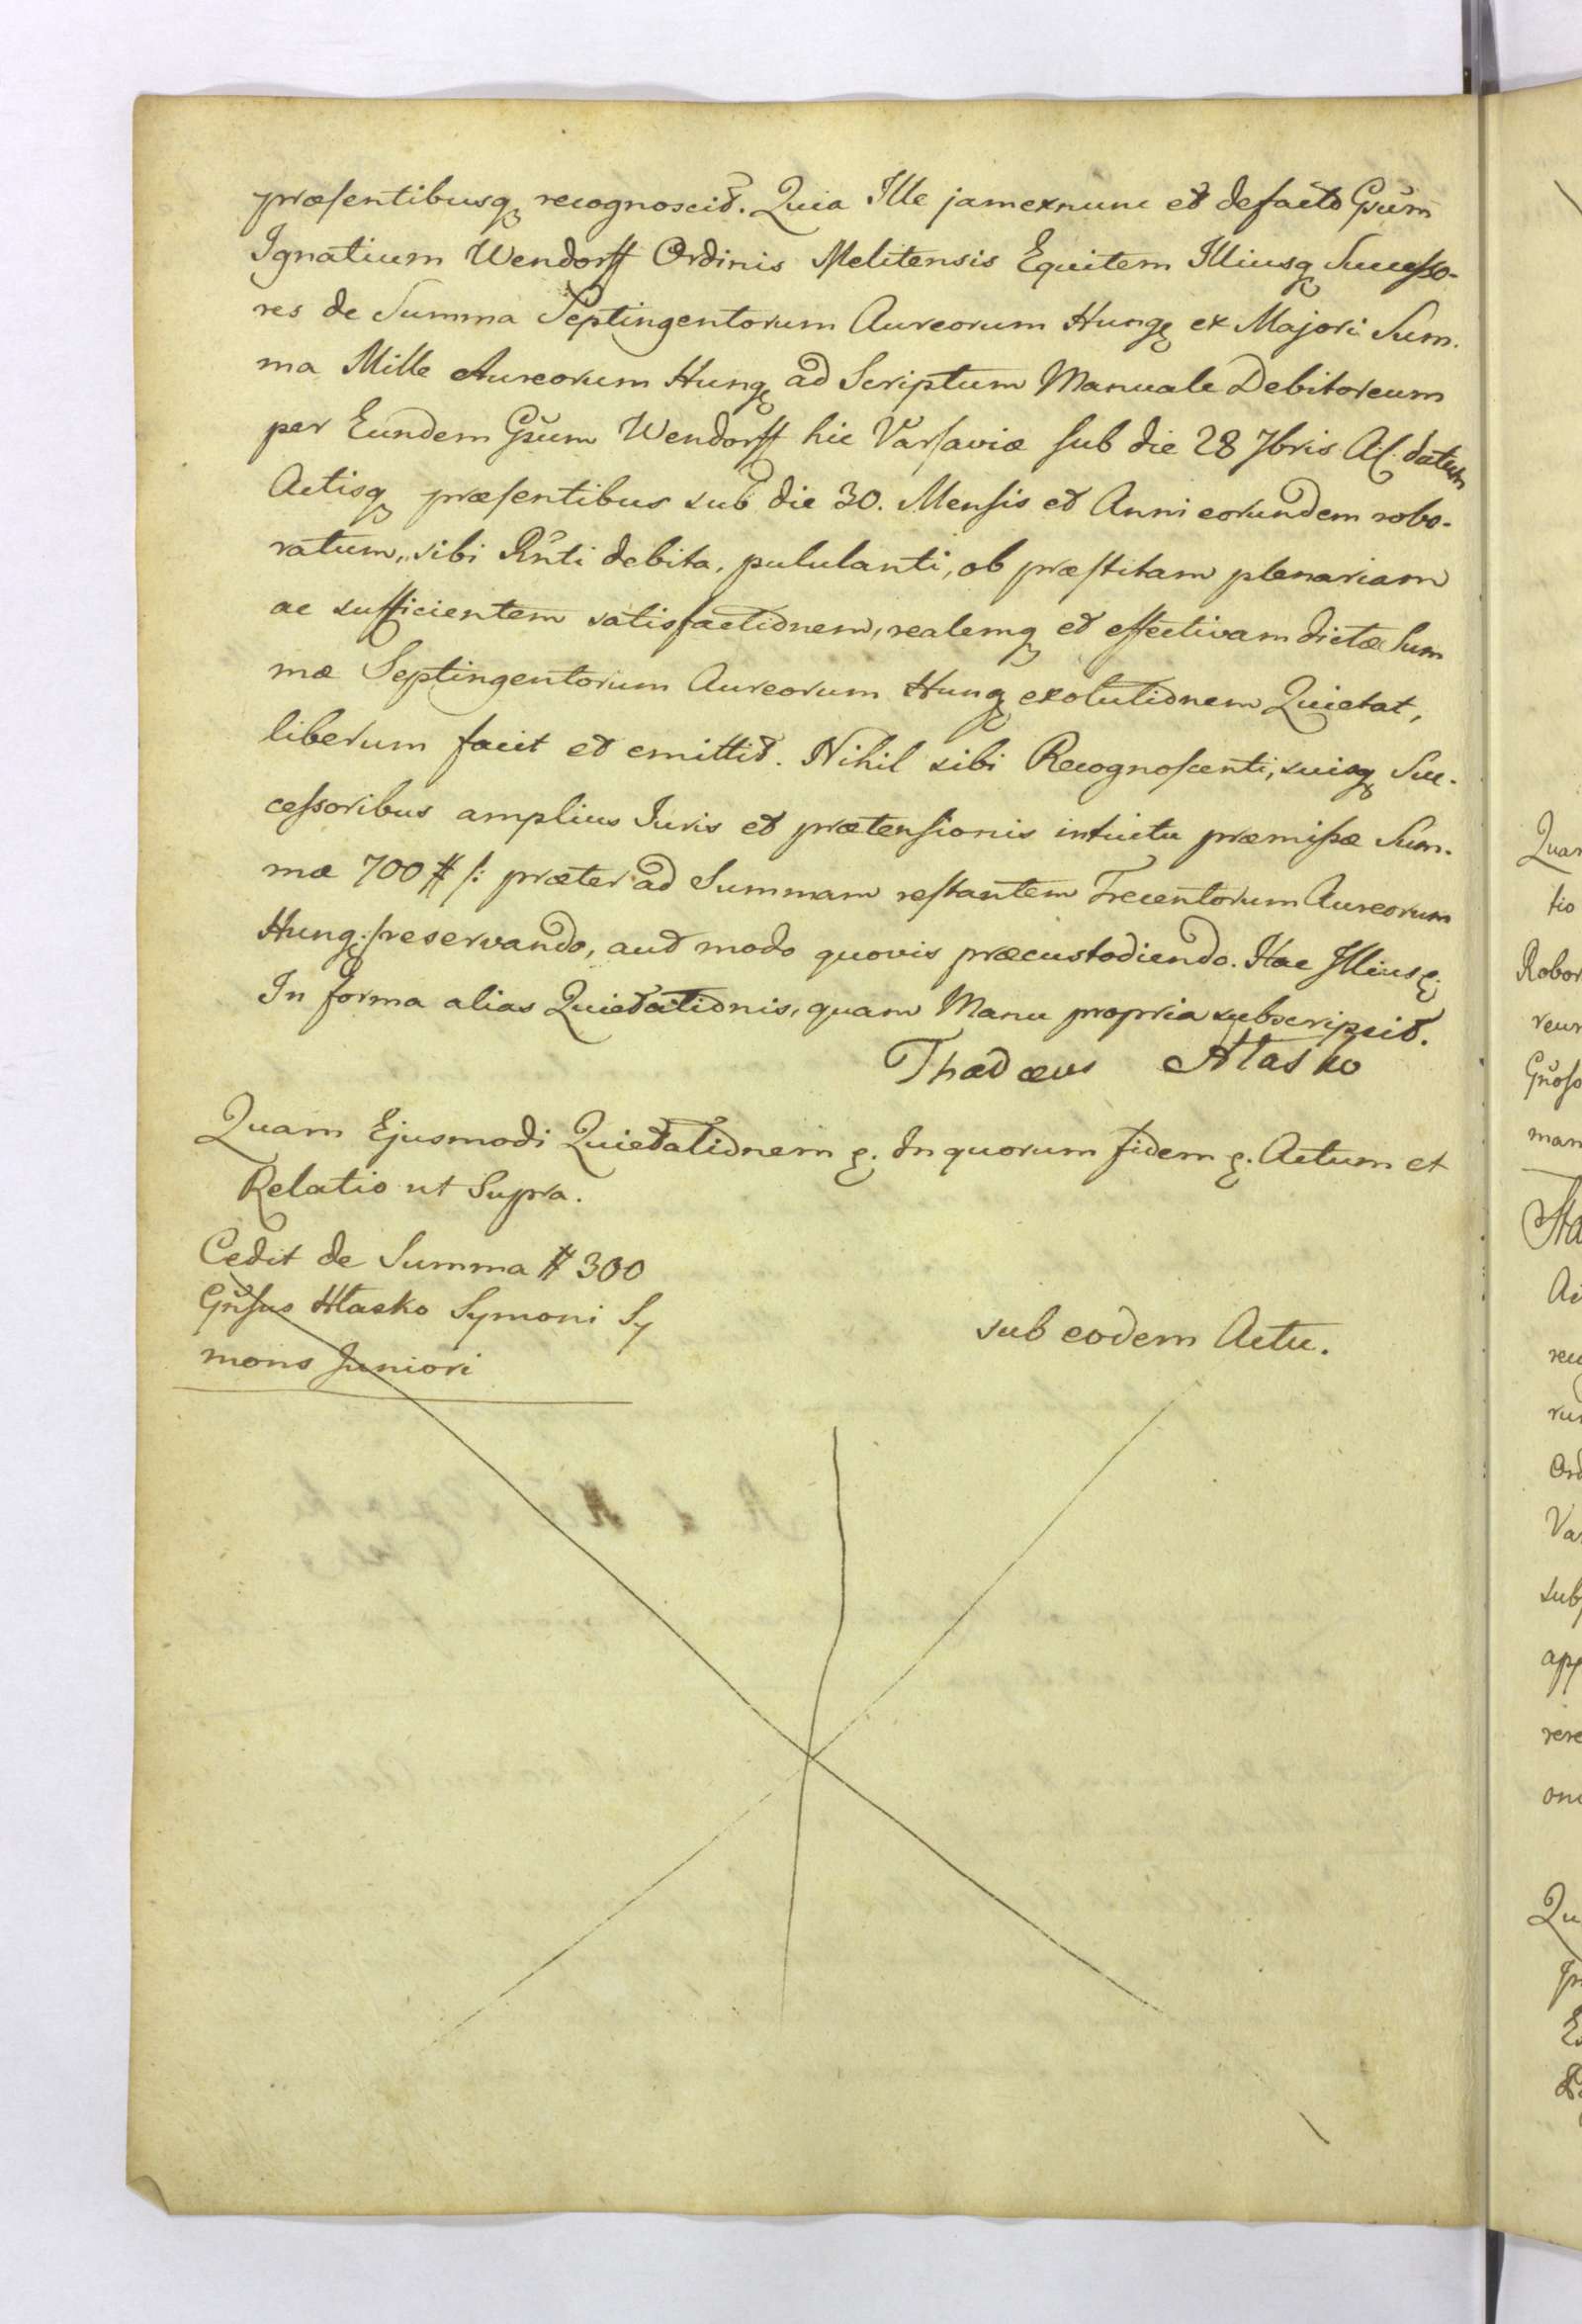 præsentibusq recognoscit. Quia Ille jamexnunc et defacto Gsum
Ignatium Wendorff Ordinis Melitensis Equitem Illiusq Successo-
res de Summa Septingentorum Aureorum Hung ex Majori Sum-
ma Mille Aureorum Hung ad Scriptum Manuale Debitoreum
per Eundem Gsum Wendorff hic Varsaviæ sub die 28 7bris datum
Actisq præsentibus sub die 30. Mensis et Anni eorundem robo-
ratum, sibi Rnti debita, pululanti, ob præstitam plenariam
ac sufficientem satisfactionem, realemq et effectivam dictæ Sum
mæ Septingentorum Aureorum Hung exolutionem Quietat,
liberum facit et emittit. Nihil sibi Recognoscenti, suisq Suc-
cessoribus amplius Juris et prætensionis intuitu præmissæ Sum-
mæ 700 # /: præter ad Summam restantem Trecentorum Aureorum
Hung :/ reservando, aut modo quovis præcustodiendo. Hac Illius
In forma alias Quietationis, quam Manu propria subscripsit.
Thadæus Hłasko
Quam Ejusmodi Quietationem In quorum fidem Actum et
Relatio ut Supra.
Cedit de Summa # 300
Gnsus Hłasko Symoni Sy
mons Juniori
sub eodem Actu.
Quar
tio
Robor
reur
man
Va
sub
app
rere
Qu